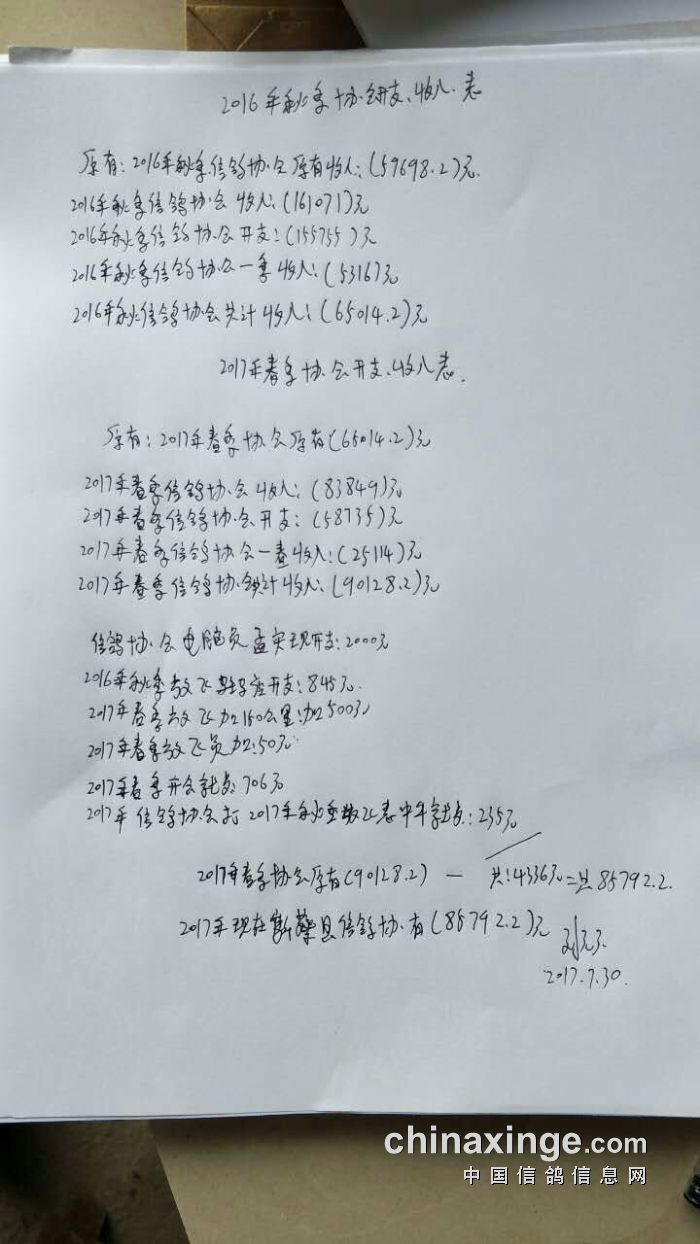 2016年秋季协会开支、收入表
原有：2016年秋季信鸽协会原有收入：(59698.2)元.
2016年秋季信鸽协会收入：(161071)元
2016年秋季信鸽协会开支：(155755)元
2016年秋季信鸽协会一季收入：(5316)元
2016年秋信鸽协会共计收入：(65014.2)元
2017年春季协会开支、收入表.
原有：2017年春季协会原有(65014.2)元
2017年春季信鸽协会收入：(83849)元
2017年春季信鸽协会开支：(58735)元
2017年春季信鸽协会一春收入：(25114)元
2017年春季信鸽协会共计收入：(90128.2)元
信鸽协会电脑员孟实现开支：2000元
2016年秋季放飞开支：845元.
2017年春季放飞加150公里：加500元
2017年春季放飞员加：50元
2017年春季开会：706元
2017年信鸽协会打2017年秋季放飞表：235元
2017年春季协会原有(90128.2) — 共：4336元=共85792.2.
2017年现在新蔡县信鸽协.有(85792.2)元
2017.7.30.
chinaxinge.com
中国信鸽信息网